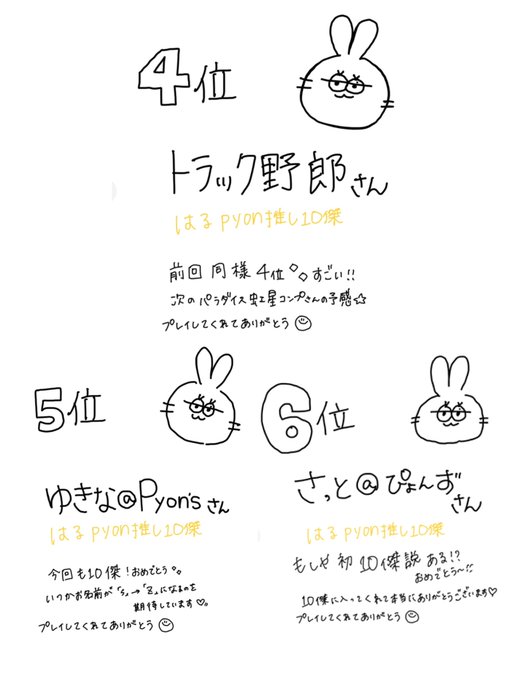 4位
トラック野郎さん
はるpyon推し10傑
前回同様4位 すごい!!
次のパラダイス虹星コンプさんの予感☆
プレイしてくれてありがとう
5位
ゆきな@Pyon'sさん
はるpyon推し10傑
今回も10傑!おめでとう
いつかお名前が「s」→「z」になるのを
期待しています♡。
プレイしてくれてありがとう
6位
さっと@ぴょんずさん
はるpyon推し10傑
もしや初10傑説ある!?
おめでとう〜!!
10傑に入ってくれて本当にありがとうございます♡
プレイしてくれてありがとう